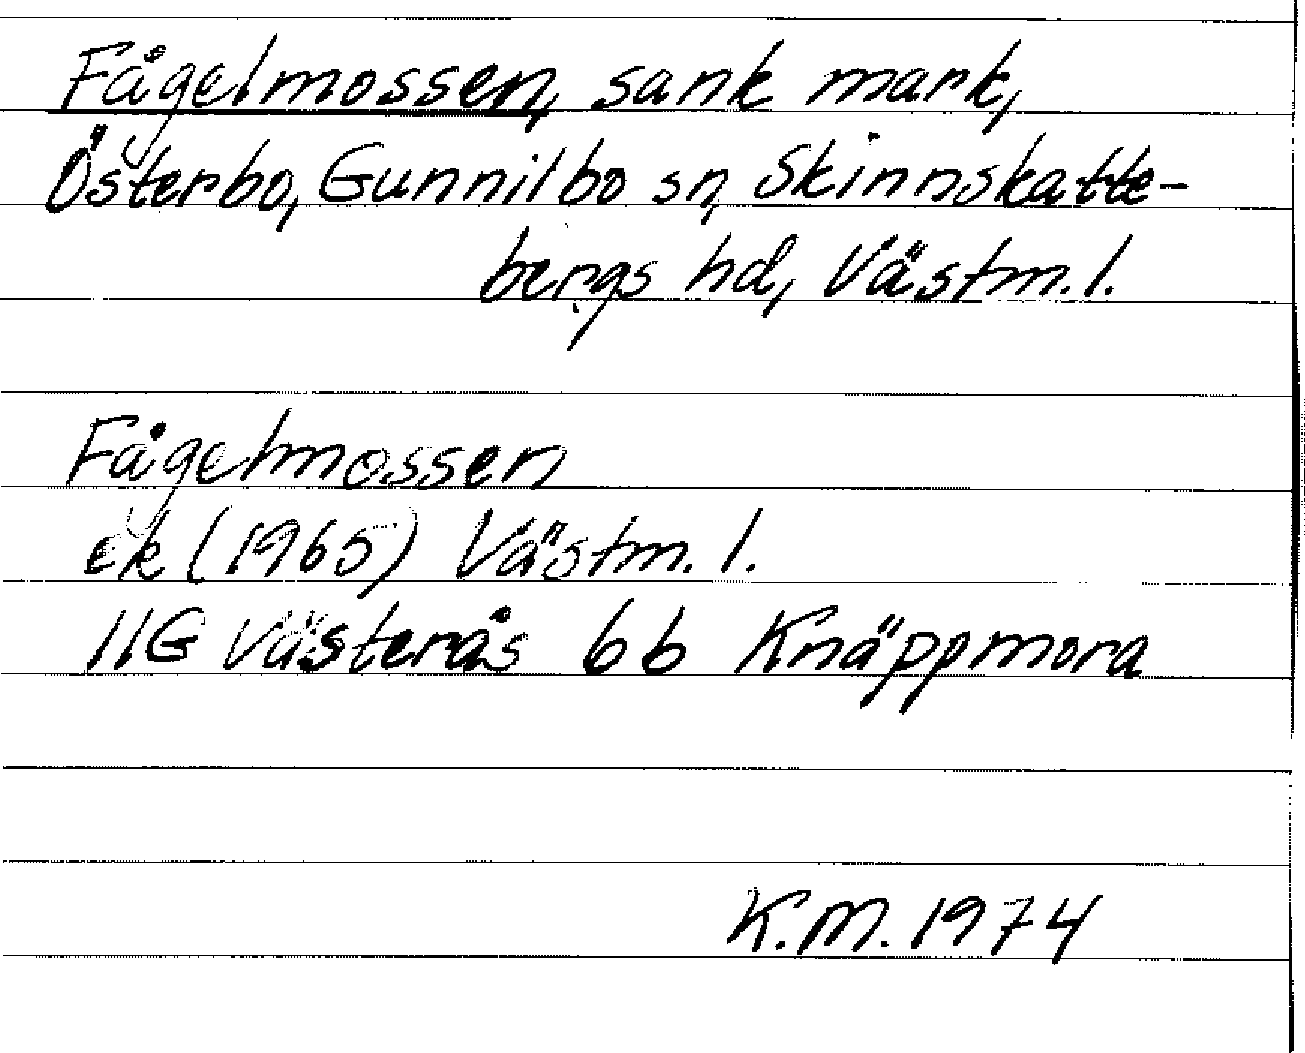 Fågelmossen, sank mark,
Österbo, Gunnilbo sn, Skinnskatte-
bergs hd, Västm. l.
Fågelmossen
ek (1965) Västm. l.
11G Västerås 6b Knäppmora
K.M. 1974